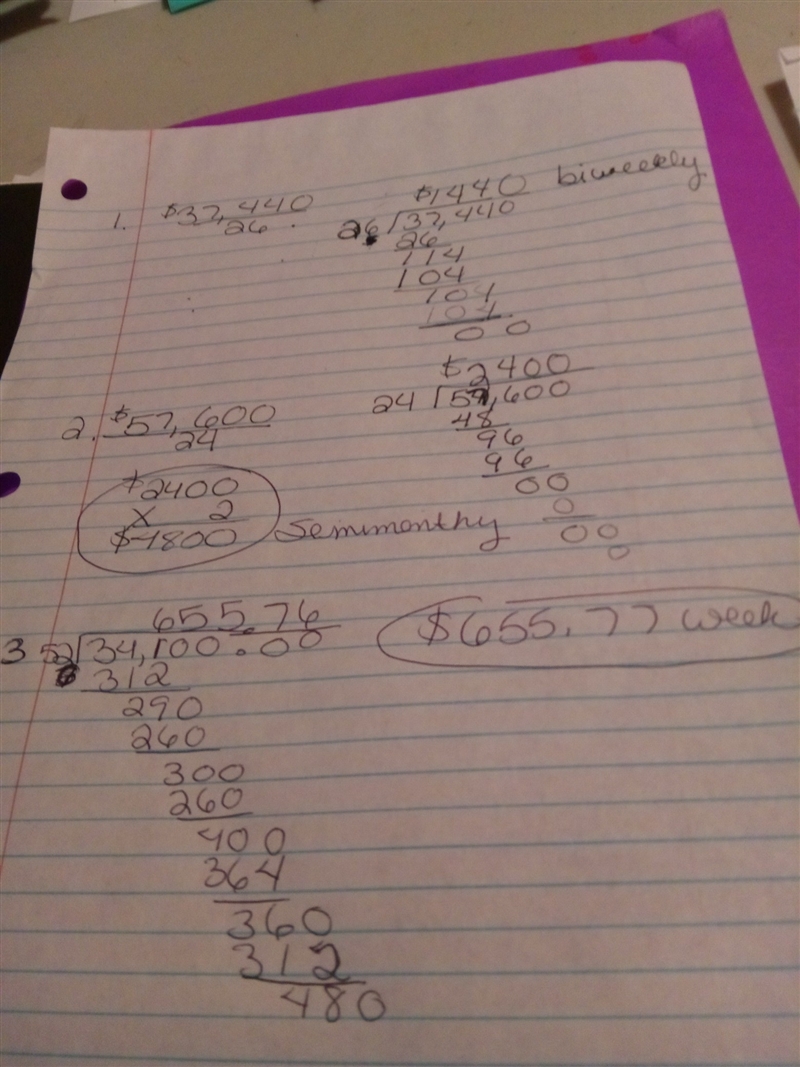 $1440 biweekly
1. $37,440 26√37,440
26 . 26
114
104
104
104
00
$2400
2. $57,600 24√57,600
24 48
96
96
00
0
00
0
$2400
x 2
$4800 Semimonthy
655.76 $655.77 week
3 52√34,100.00
312
290
260
300
260
400
364
360
312
480